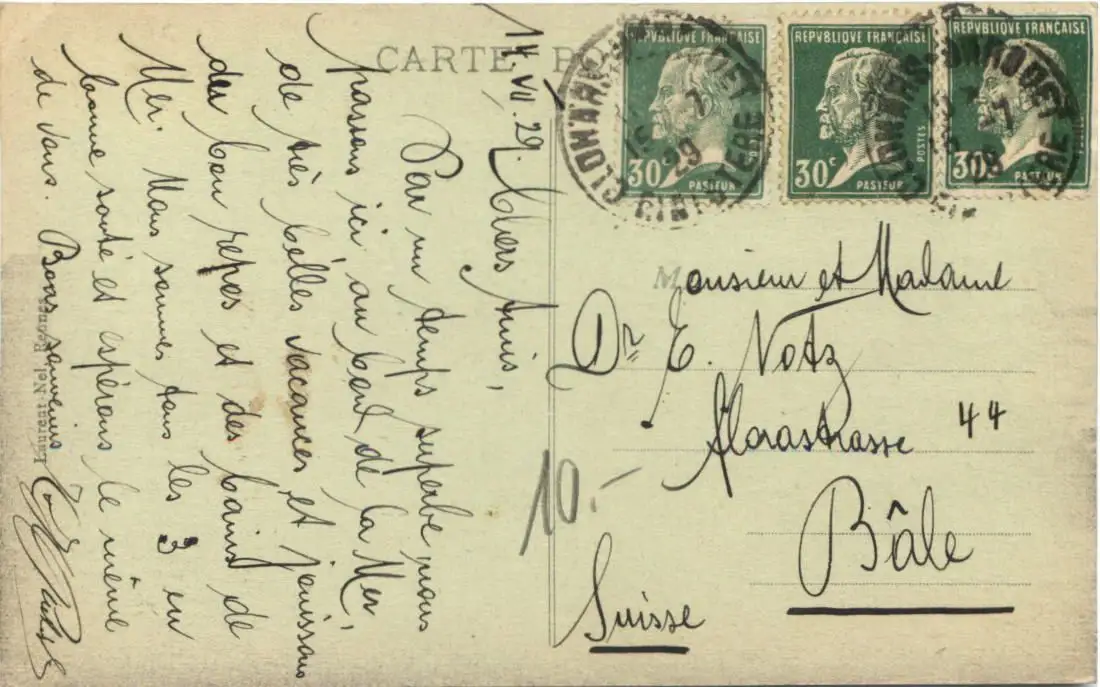 CARTE PO
14.VII.29. Chers Amis,
Par un temps superbe nous
passons ici au bord de la Mer,
de très belles vacances et jouissons
du bon repos et des bains de
Mer. Nous sommes tous les 3 en
bonne santé et espérons le même
de vous. Bons souvenirs
Laurent-Nel, Rennes
REPVBLIQVE FRANÇAISE
30c
POSTES
PASTEUR
REPVBLIQVE FRANÇAISE
30c
POSTES
PASTEUR
REPVBLIQVE FRANÇAISE
30c
FINISTERE
29
Monsieur et Madame
Dr. E. Notz
Florastrasse 44
Bâle
Suisse
10.-